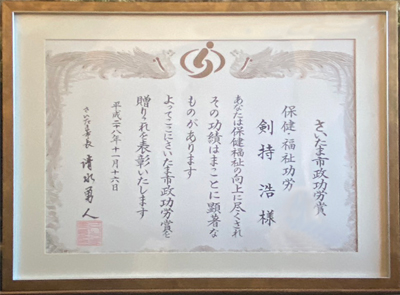 さいたま市政功労賞
保健・福祉功労
剣持 浩 様
あなたは保健福祉の向上に尽くされ
その功績はまことに顕著な
ものがあります
よってここにさいたま市政功労賞を
贈りこれを表彰いたします
平成二八年十一月十六日
さいたま市長 清水勇人